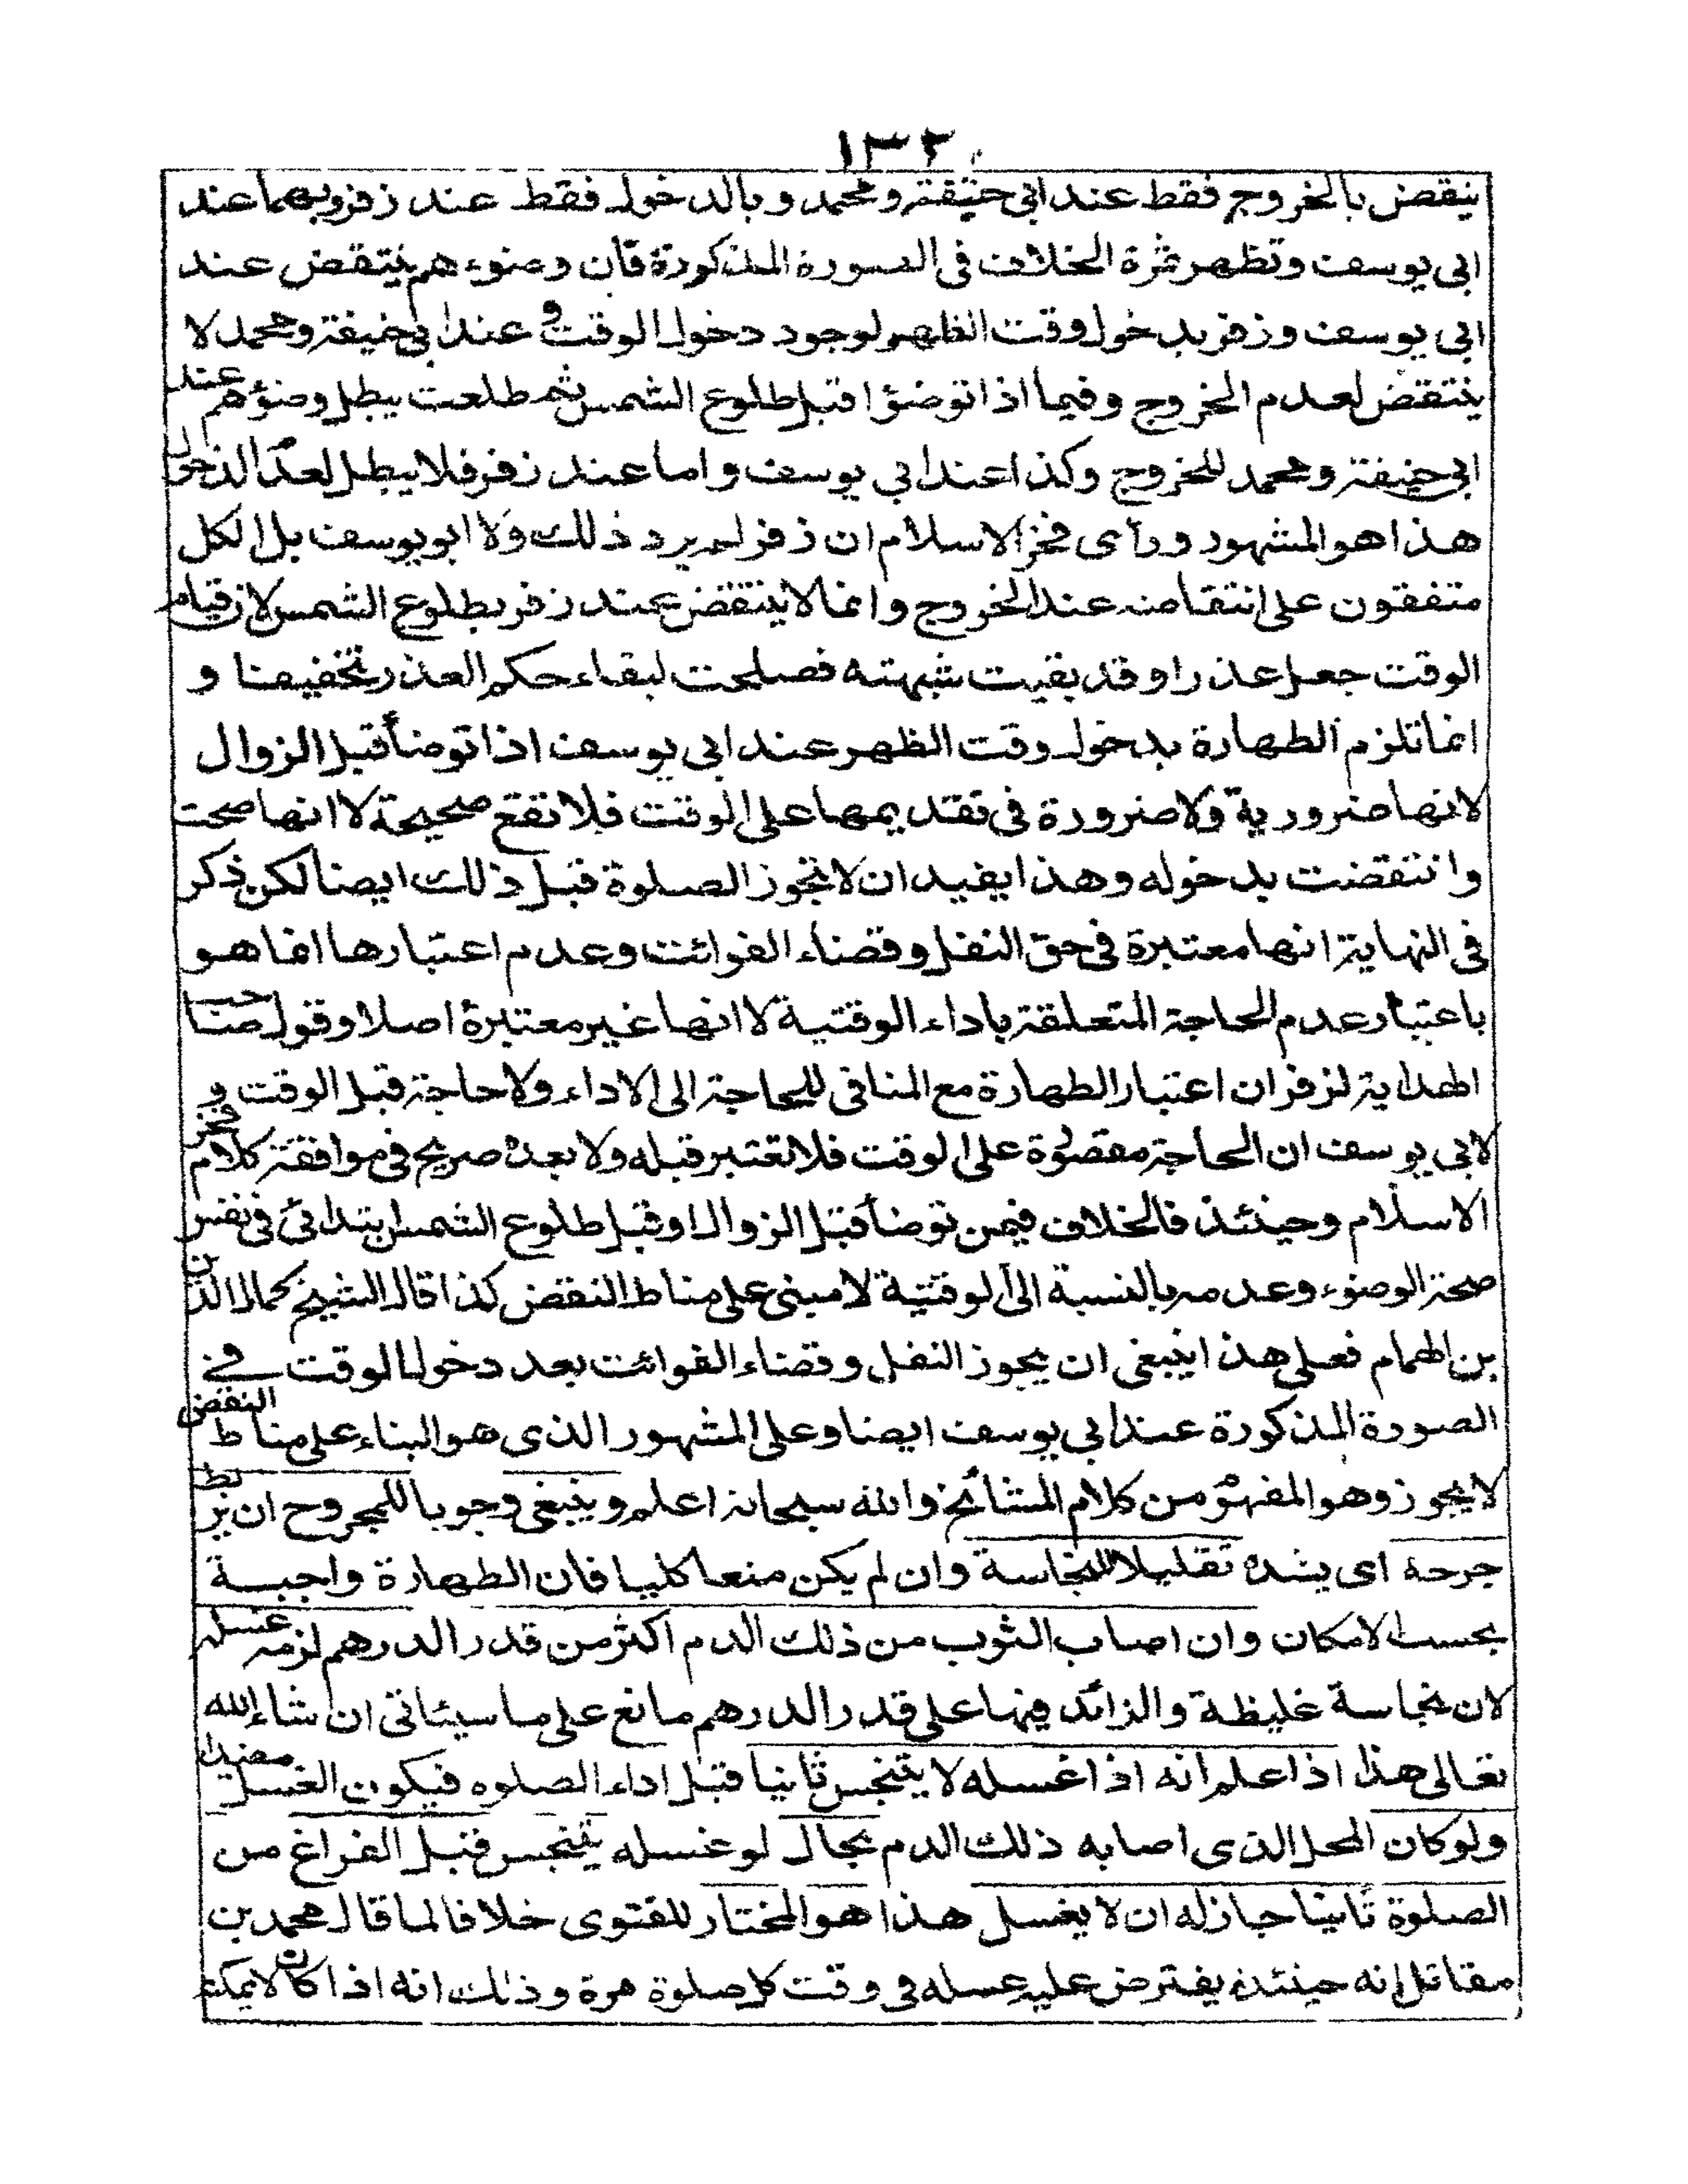 ١٣٢
ينقض بالخروج فقط عند ابى حنيفة ومحمد وبالدخول فقط عند زفر وبهما عند
ابى يوسف وتظهر ثمرة الخلاف فى الصورة المذكورة فان وضوءهم ينتقض عند
ابى يوسف وزفر بدخول وقت الظهر لوجود دخول الوقت وعند ابى حنيفة ومحمد لا
ينتقض لعدم الخروج وفيما اذا توضؤا قبل طلوع الشمس ثم طلعت يبطل وضوؤهم عند
ابى حنيفة ومحمد للخروج وكذا عند ابي يوسف واما عند زفر فلا يبطل لعدم الدخول
هذا هو المشهور ورأى فخر الاسلام ان زفر لم يرد ذلك ولا ابو يوسف بل الكل
متفقون على انتقاضه عند الخروج وانما لا ينتقض عند زفر بطلوع الشمس لان قيام
الوقت جعل عذرا وقد بقيت شبهته فصلحت لبقاء حكم العذر تخفيفا و
انما تلزم الطهارة بدخول وقت الظهر عند ابى يوسف اذا توضأ قبل الزوال
لانها ضرورية ولا ضرورة فى تقديمها على الوقت فلا تقع صحيحة لا انها صحت
وانتقضت بدخوله وهذا يفيد ان لا تجوز الصلوة قبل ذلك ايضا لكن ذكر
فى النهاية انها معتبرة فى حق النفل وقضاء الفوائت وعدم اعتبارها انما هو
باعتبار عدم الحاجة المتعلقة باداء الوقتية لا انها غير معتبرة اصلا وقول صاحب
الهداية لزفر ان اعتبار الطهارة مع المنافى للحاجة الى الاداء ولا حاجة قبل الوقت و
لابى يوسف ان الحاجة مقصورة على الوقت فلا تعتبر قبله ولا بعده صريح فى موافقة كلام فخر
الاسلام وحينئذ فالخلاف فيمن توضأ قبل الزوال او قبل طلوع الشمس ابتدائى فى نفس
صحة الوضوء وعدمه بالنسبة الى الوقتية لا مبنى على مناط النقض كذا قال الشيخ كمال الدين
بن الهمام فعلى هذا ينبغى ان يجوز النفل وقضاء الفوائت بعد دخول الوقت في
الصورة المذكورة عند ابي يوسف ايضا وعلى المشهور الذى هو البناء على مناط النقض
لا يجوز وهو المفهوم من كلام المشائخ والله سبحانه اعلم وينبغى وجوبا للمجروح ان يربط
جرحه اى يشده تقليلا للنجاسة وان لم يكن منعا كليا فان الطهارة واجبة
بحسب الامكان وان اصاب الثوب من ذلك الدم اكثر من قدر الدرهم لزمه غسله
لان نجاسة غليظة والزائد فيها على قدر الدرهم مانع على ما سيئاتى ان شاء الله
تعالى هذا اذا علم انه اذا غسله لا يتنجس ثانيا قبل اداء الصلوه فيكون الغسل مفيدا
ولو كان المحل الذى اصابه ذلك الدم بحال لو غسله يتنجس قبل الفراغ من
الصلوة ثانيا جاز له ان لا يغسل هذا هو المختار للفتوى خلافا لما قال محمد بن
مقاتل انه حينئذ يفترض عليه غسله فى وقت كل صلوة مرة وذلك انه اذا كان لا يمكنه